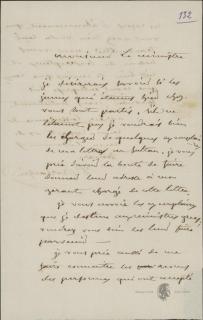 132
monsieur le ministre
je désirerais savoir si les
jeunes que étaient hier chez
vous sont partis, s'il ne
l'étaient pas je voudrais bien
les charger de quelques exemplaires
de ma lettre au sultan, je vous
prie d'avoir la bonté de faire
donner leur adresse à mon
gérant chargé de cette lettre.
je vous envoie les exemplaires
que je destine aux ministres grecs,
voudrez vous bien les leur faire
parvenir —
je vous prie aussi de me
faire connaître les noms
des personnes qui ont accepté